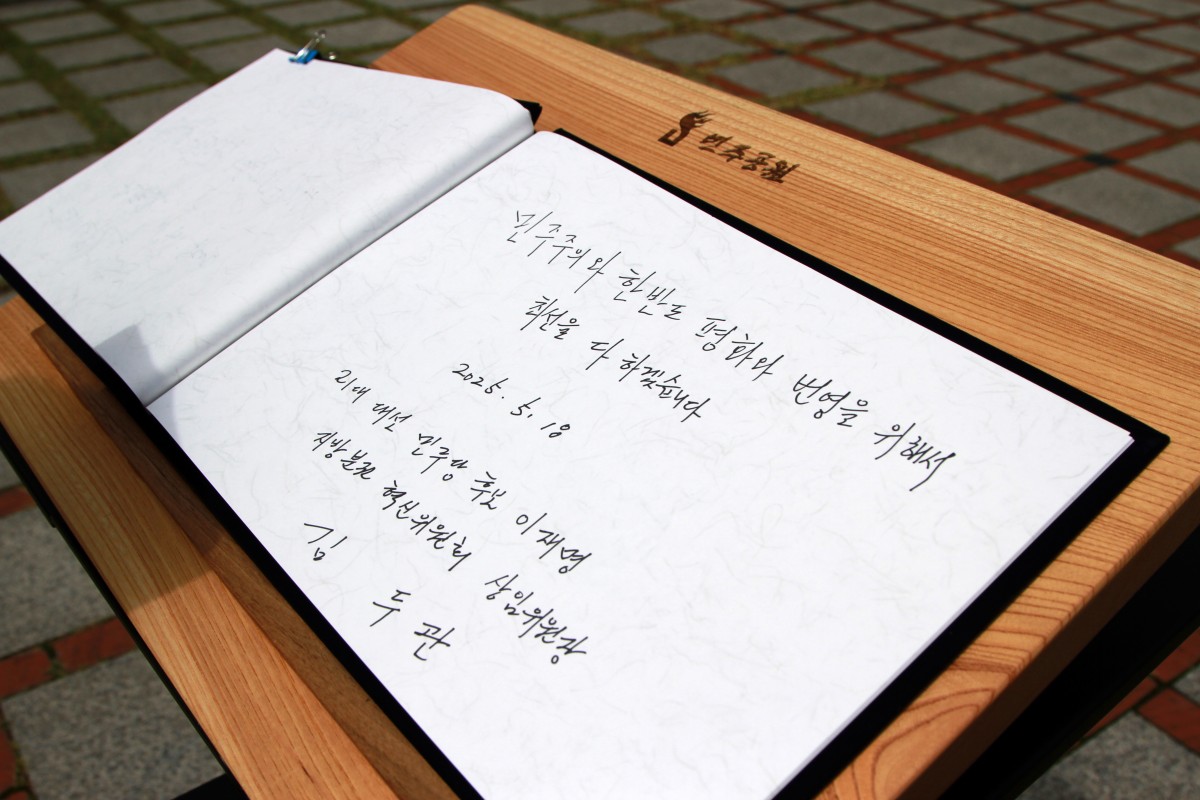 민주공원
민주주의와 한반도 평화와 번영을 위해서
최선을 다 하겠습니다
2025. 5. 18
21대 대선 민주당 후보 이재명
지방분권 혁신위원회 상임위원장
김 두 관